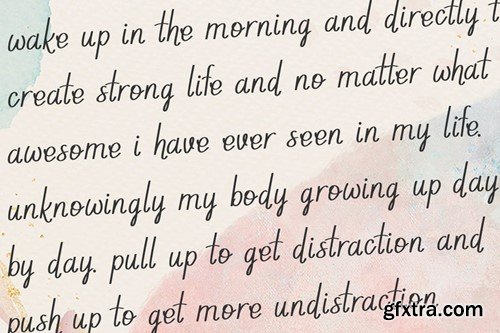 wake up in the morning and directly t
create strong life and no matter what
awesome i have ever seen in my life.
unknowingly my body growing up day
by day. pull up to get distraction and
push up to get more undistraction
gfxtra.com